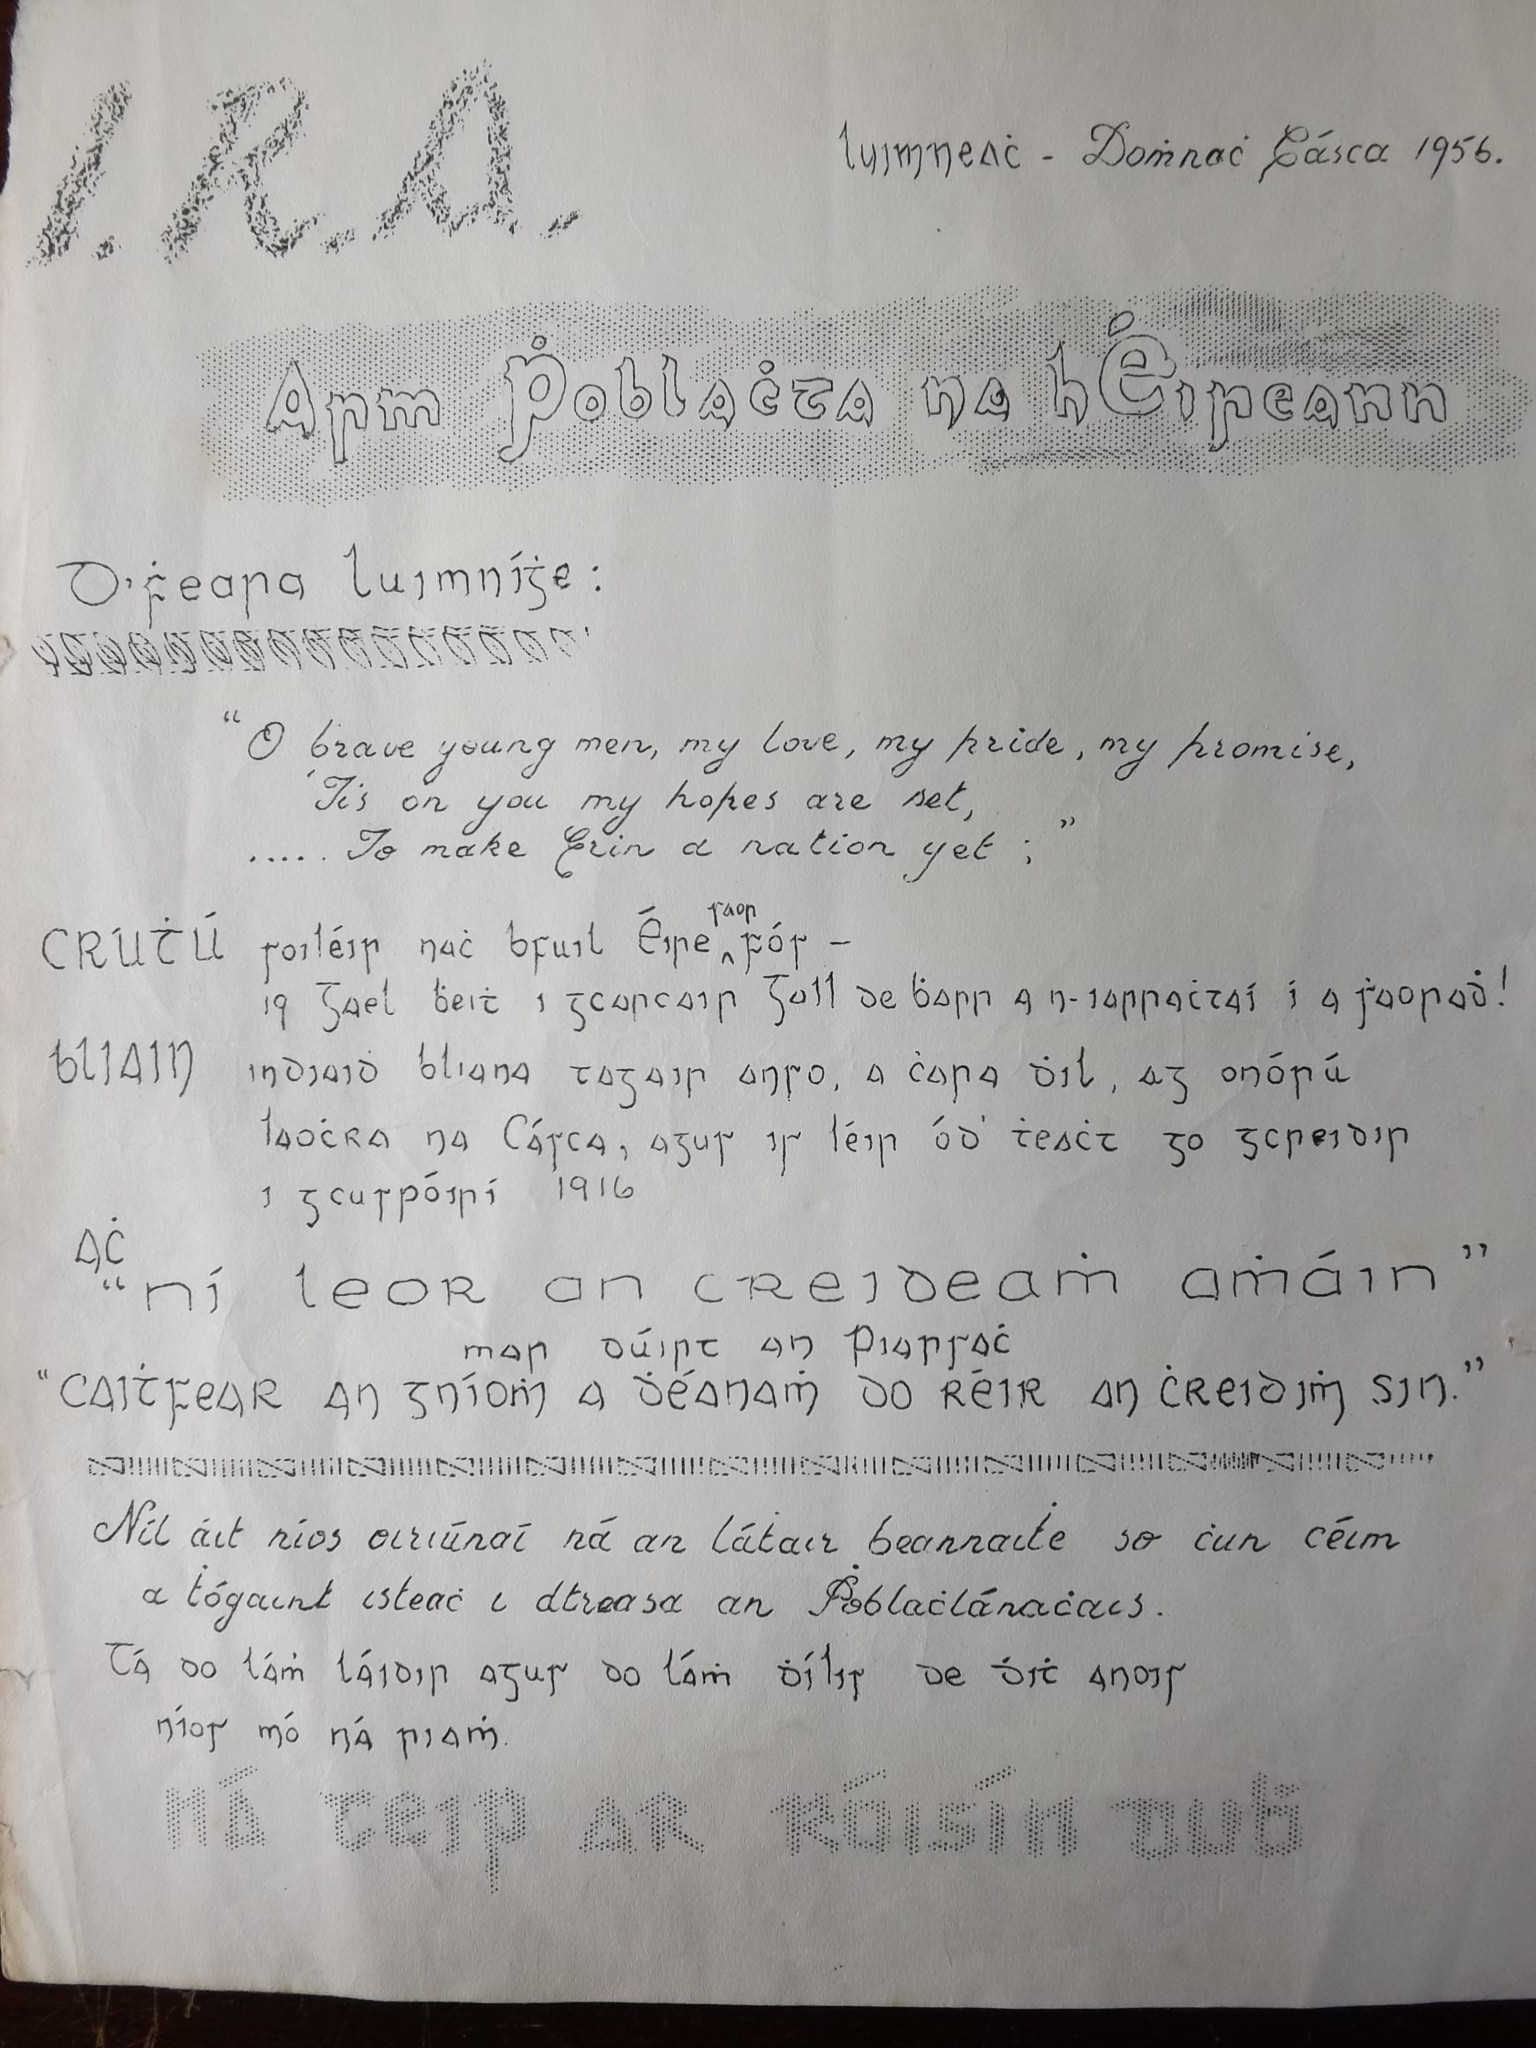 I.R.A.
Luimneaċ - Doṁnaċ Cásca 1956.
Arm Ṗoblaċta na hÉireann
D'ḟeara Luimníġe:
"O brave young men, my love, my pride, my promise,
'Tis on you my hopes are set,
..... To make Erin a nation yet ;"
CRÚṪÚ soiléir naċ bfuil Éire saor fós —
is Gael ḃeiṫ i gcarcair Gall de ḃarr a n-iarraċtaí í a ṡaoraḋ!
BLIAIN indiaiḋ bliana tagair anso, a ċara ḋil, ag onórú
laoċra na Cásca, agus is léir ód' ṫeaċt go gcreidir
i gcuspóirí 1916
AĊ
"ní leor an creideaṁ aṁáin"
mar dúirt an Piarsaċ
"CAIṪFEAR AN GNÍOṀ A ḊÉANAṀ DO RÉIR AN ĊREIDIṀ SIN."
Níl áit níos oiriúnaí ná an láṫair beannaiṫe so ċun céim
a ṫógaint isteaċ i dtreasa an Ṗoblaċtánaċais.
Tá do láṁ láidir agus do láṁ ḋílis de ḋíṫ anois
níos mó ná riaṁ.
NÁ TEIP AR RÓISÍN DUḂ